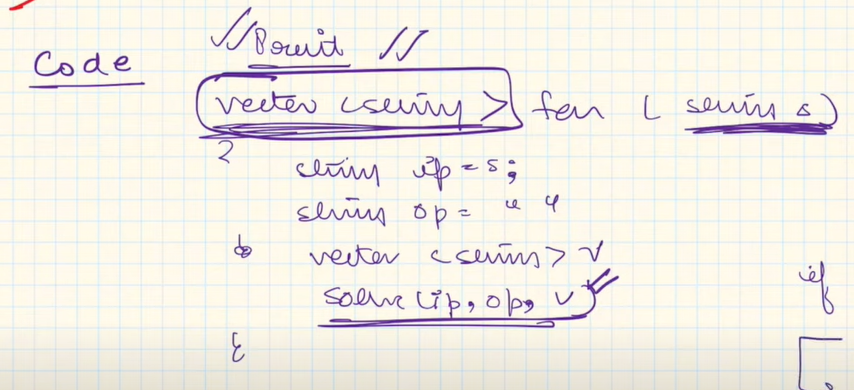 // Permit //
Code
vector <string> fun ( string s )
{
string ip = s;
string op = " "
vector <string> v
solve (ip, op, v)
}
if